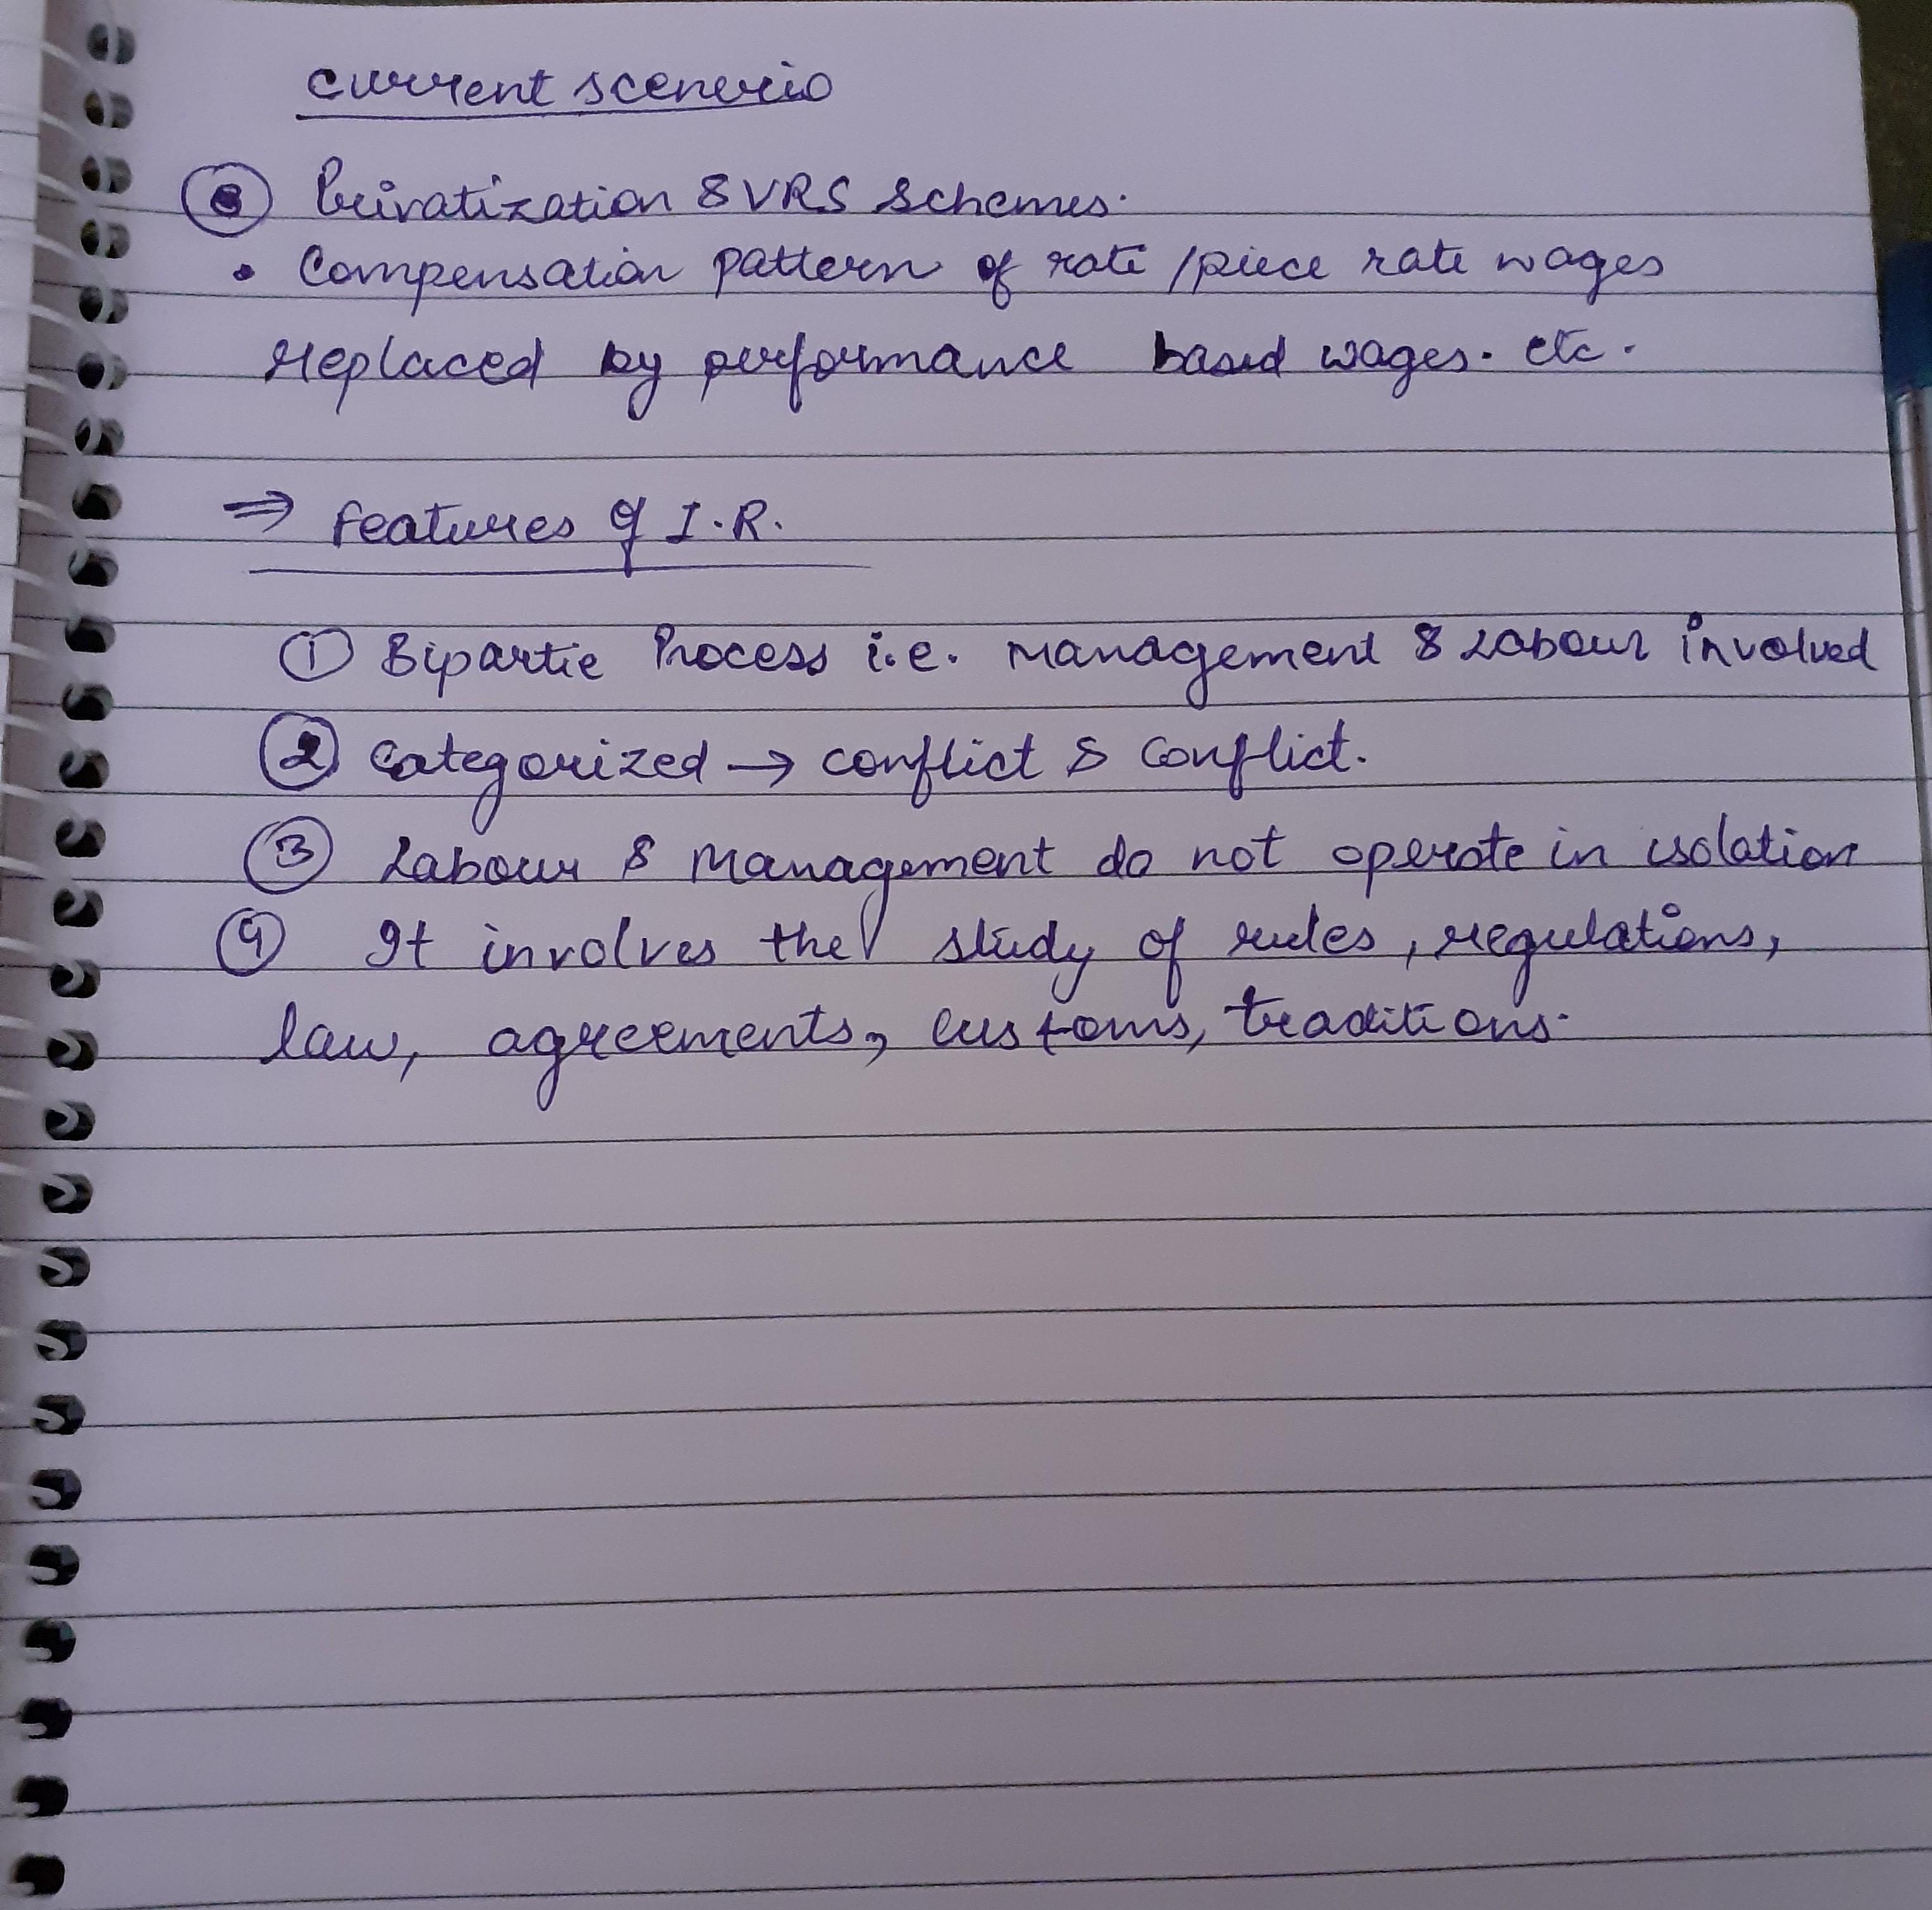 current scenerio
• Privatization & VRS Schemes.
• Compensation pattern of rate / piece rate wages
replaced by performance based wages. etc.
⇒ features of I.R.
① Bipartie Process i.e. management & Labour involved
② Categorized → conflict & Conflict.
③ Labour & Management do not operate in isolation
④ It involves the study of rules, regulations,
law, agreements, customs, traditions.